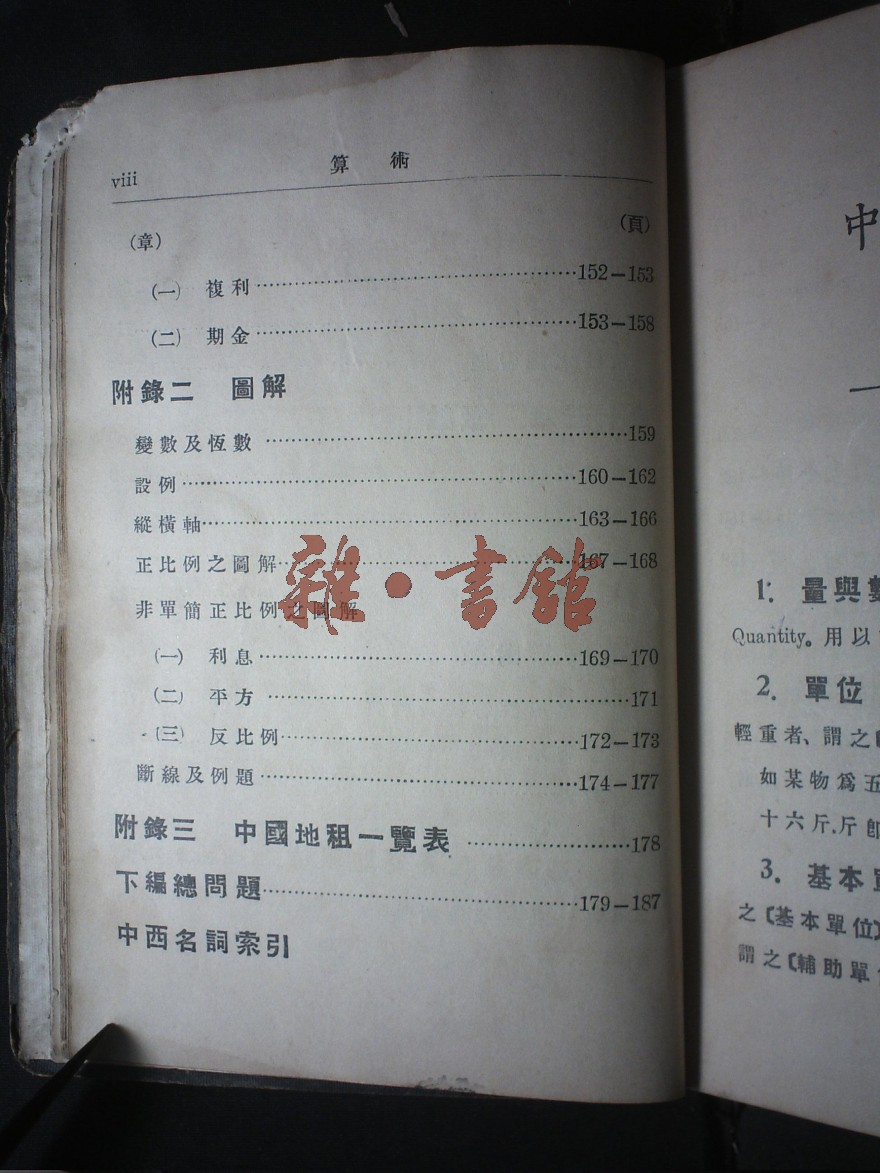 viii 算術
(章) (頁)
(一) 複利……152—153
(二) 期金……153—158
附錄二 圖解
變數及恆數……159
設例……160—162
縱橫軸……163—166
正比例之圖解……167—168
非單簡正比例之圖解
(一) 利息……169—170
(二) 平方……171
(三) 反比例……172—173
斷線及例題……174—177
附錄三 中國地租一覽表……178
下編總問題……179—187
中西名詞索引
雜·書館
中
1. 量與數
Quantity。用以
2. 單位
輕重者、謂之
如某物爲五
十六斤.斤卽
3. 基本
之〔基本單位〕
謂之〔輔助單